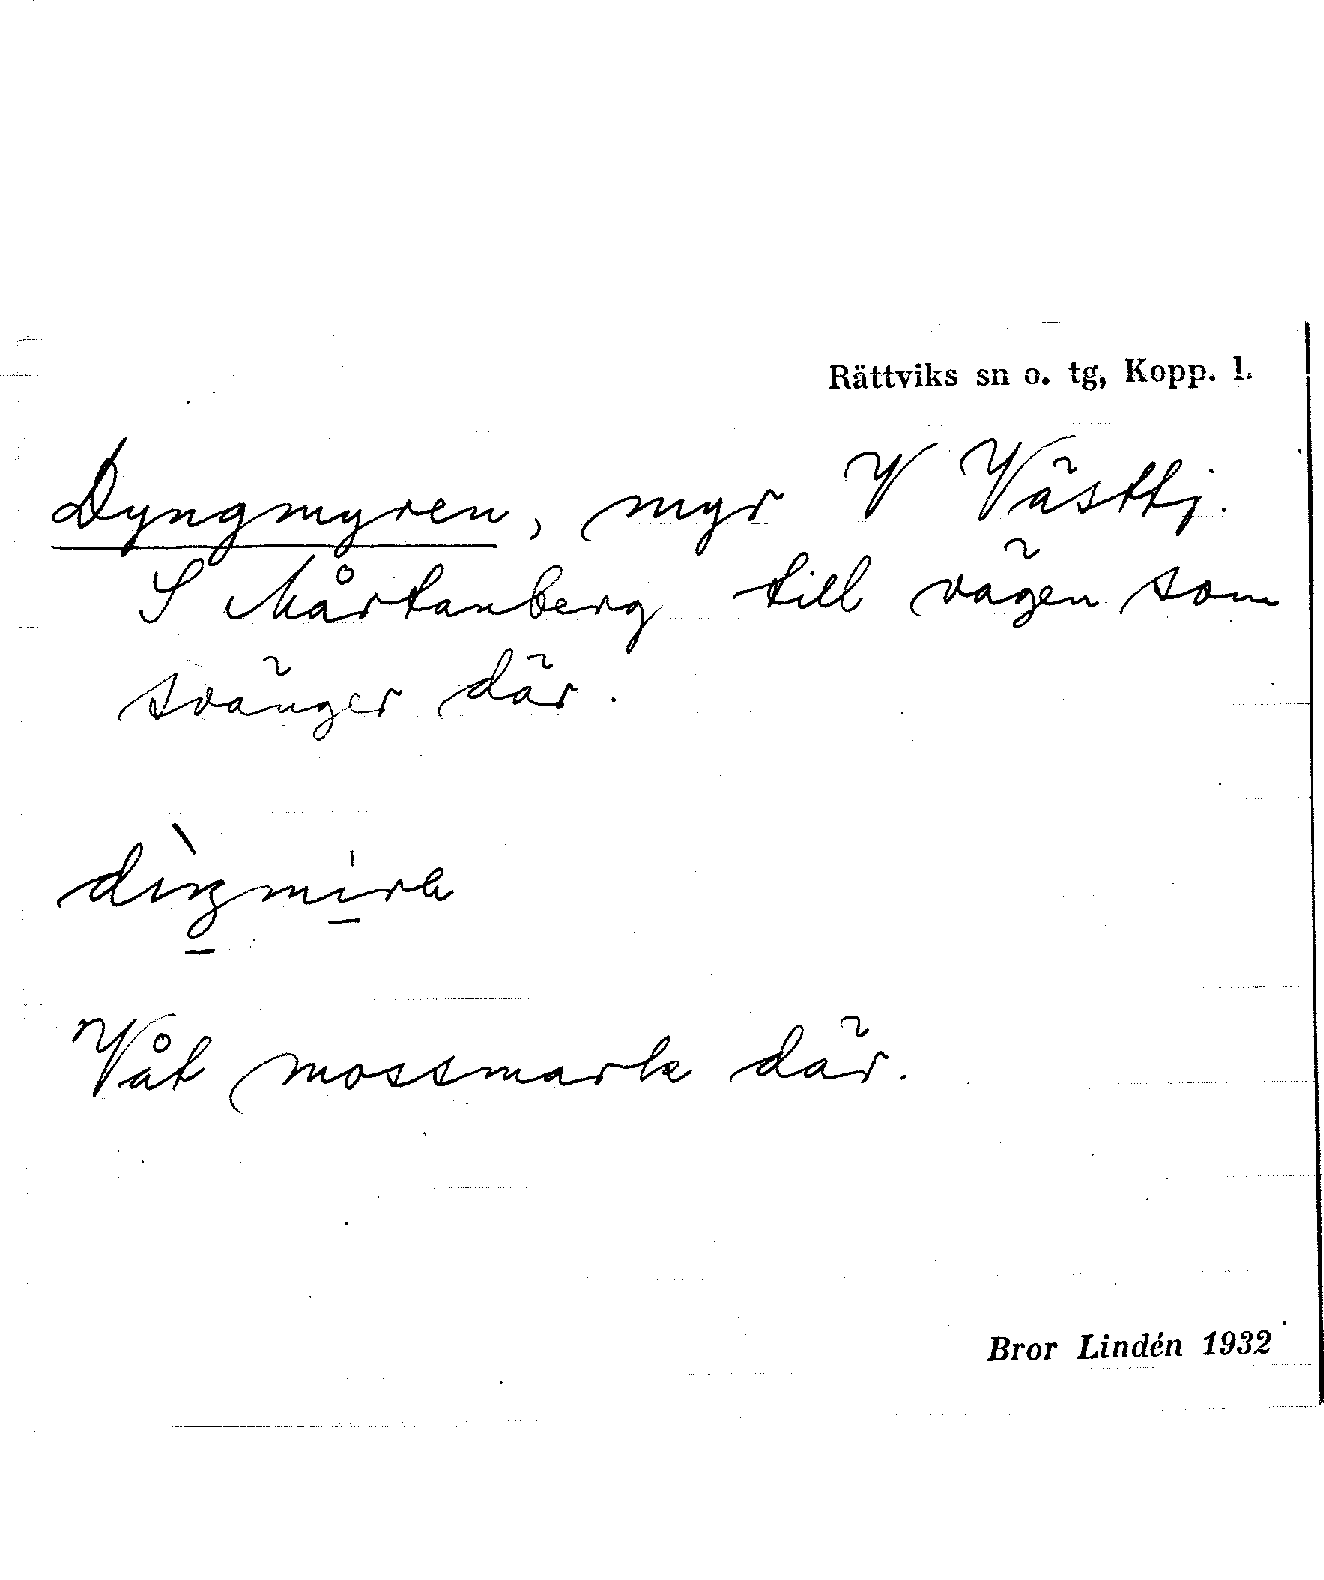 Rättviks sn o. tg, Kopp. l.
Dyngmyren, myr V Västtj.
S Mårtanberg till vägen som
svänger där.
Våt mossmark där.
Bror Lindén 1932